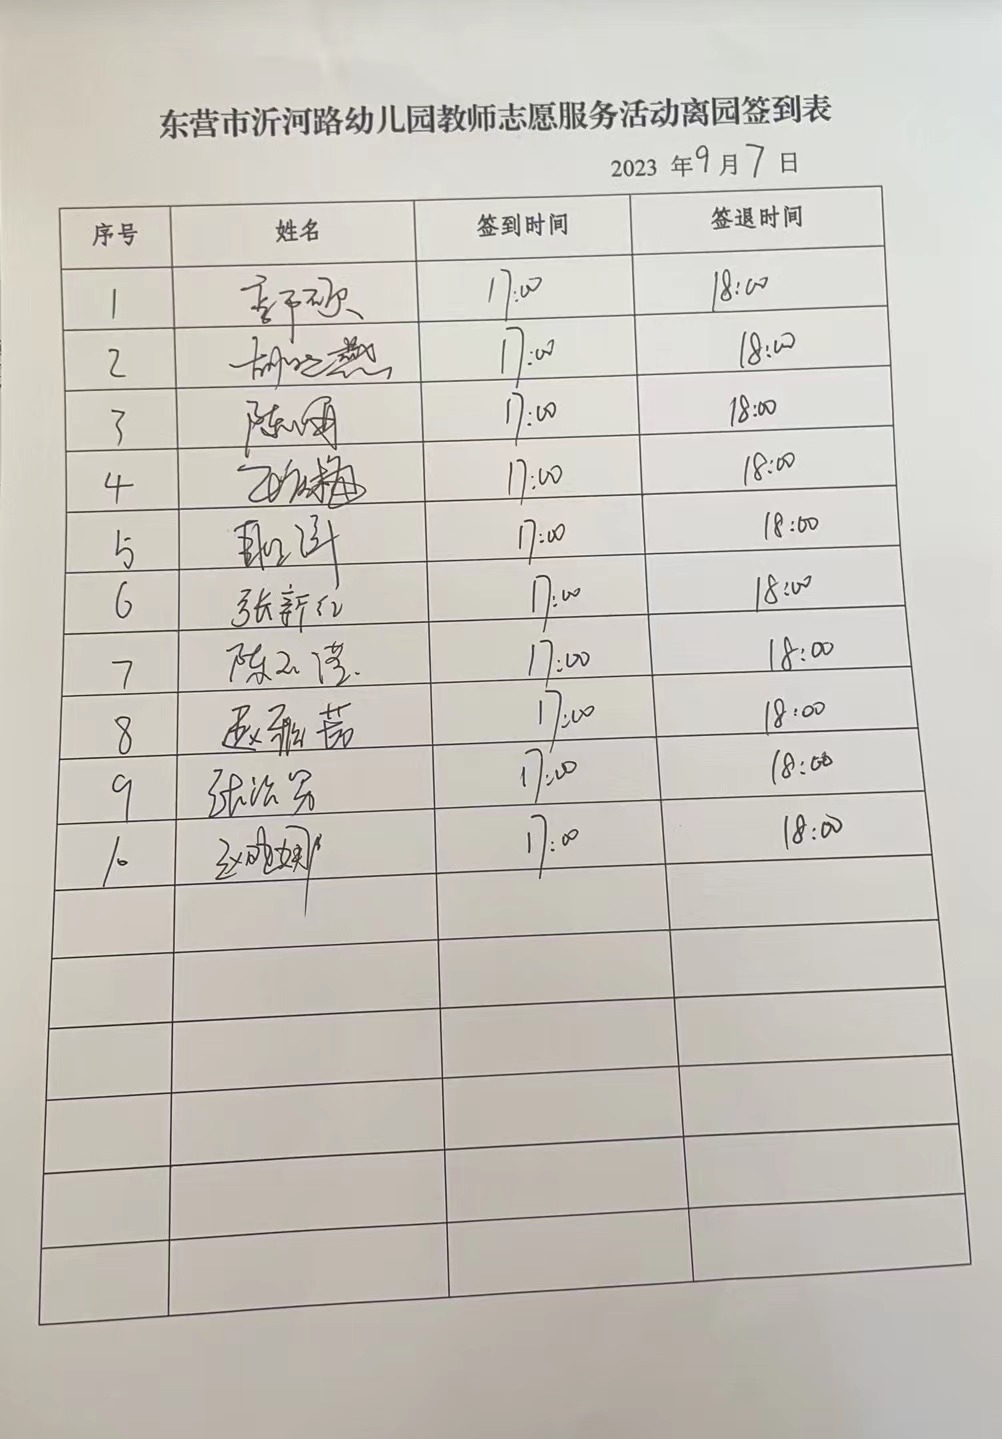 东营市沂河路幼儿园教师志愿服务活动离园签到表
2023 年 9 月 7 日
序号 姓名 签到时间 签退时间
1 17:00 18:00
2 燕 17:00 18:00
3 陈 17:00 18:00
4 梅 17:00 18:00
5 17:00 18:00
6 张新红 17:00 18:00
7 陈 17:00 18:00
8 赵雅茹 17:00 18:00
9 张 17:00 18:00
10 赵 娜 17:00 18:00